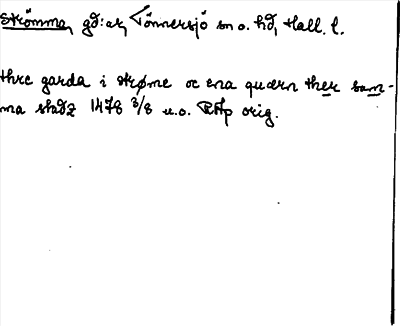 Strömma, gd:ar, Tönnersjö sn o. hd, Hall. l.
thre garda i strøme oc ena quærn ther sam-
ma stadz 1478 3/8 u.o. RAp orig.